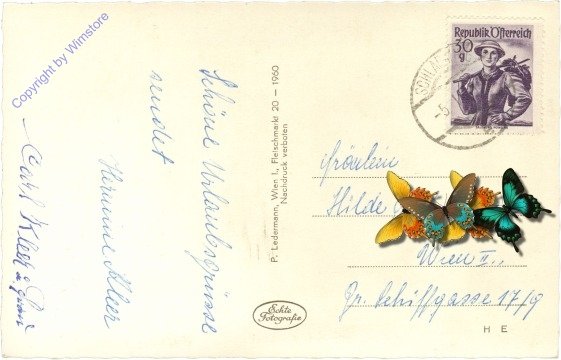 Copyright by Wimstore
Schöne Urlaubsgrüsse
sendet
Hermine
Carl
P. Ledermann, Wien I., Fleischmarkt 20 — 1960
Nachdruck verboten
Echte
Fotografie
Republik Österreich
30
g
Fräulein
Hilde
Wien II.,
Gr. Schiffgasse 17/9
H E